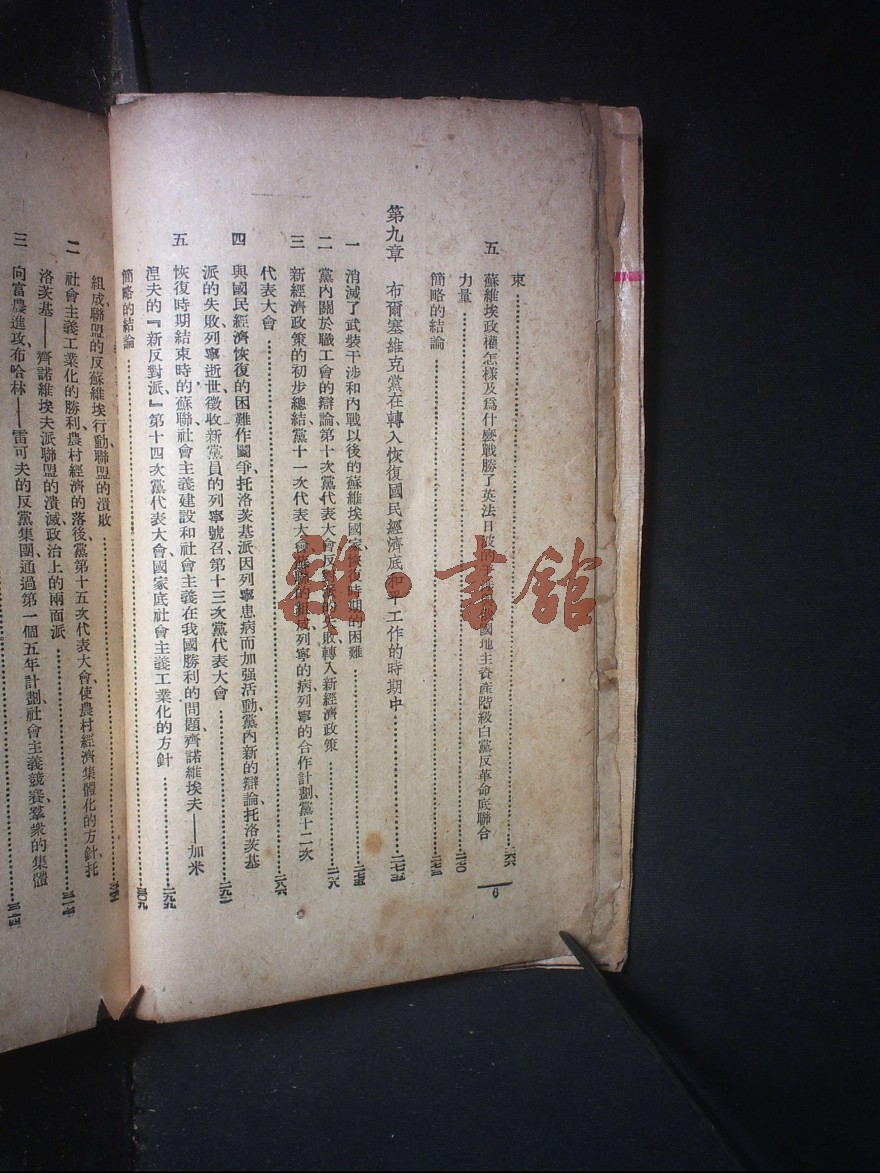 束……二六六
五 蘇維埃政權怎樣及爲什麽戰勝了英法日波的干涉 國地主資產階級白黨反革命底聯合
力量……二七〇
簡略的結論……二七三
第九章 布爾塞維克黨在轉入恢復國民經濟底和平工作的時期中……二七五
一 消滅了武裝干涉和內戰以後的蘇維埃國家、恢復時期的困難……二七五
二 黨內關於職工會的辯論、第十次黨代表大會、反對派的失敗、轉入新經濟政策……二七八
三 新經濟政策的初步總結、黨十一次代表大會、蘇聯的組成、列寧的病、列寧的合作計劃、黨十二次
代表大會……二八六
四 與國民經濟恢復的困難作鬭爭、托洛茨基派因列寧患病而加强活動、黨內新的辯論、托洛茨基
派的失敗、列寧逝世、徵收新黨員的列寧號召、第十三次黨代表大會……二九二
五 恢復時期結束時的蘇聯、社會主義建設和社會主義在我國勝利的問題、齊諾維埃夫——加米
湼夫的『新反對派』、第十四次黨代表大會、國家底社會主義工業化的方針……二九九
簡略的結論……三〇九
6
組成聯盟的反蘇維埃行動、聯盟的潰敗
二 社會主義工業化的勝利、農村經濟的落後、黨第十五次代表大會、使農村經濟集體化的方針、托
洛茨基——齊諾維埃夫派聯盟的潰滅、政治上的兩面派
三 向富農進攻、布哈林——雷可夫的反黨集團、通過第一個五年計劃、社會主義競賽、羣衆的集體
雜·書館